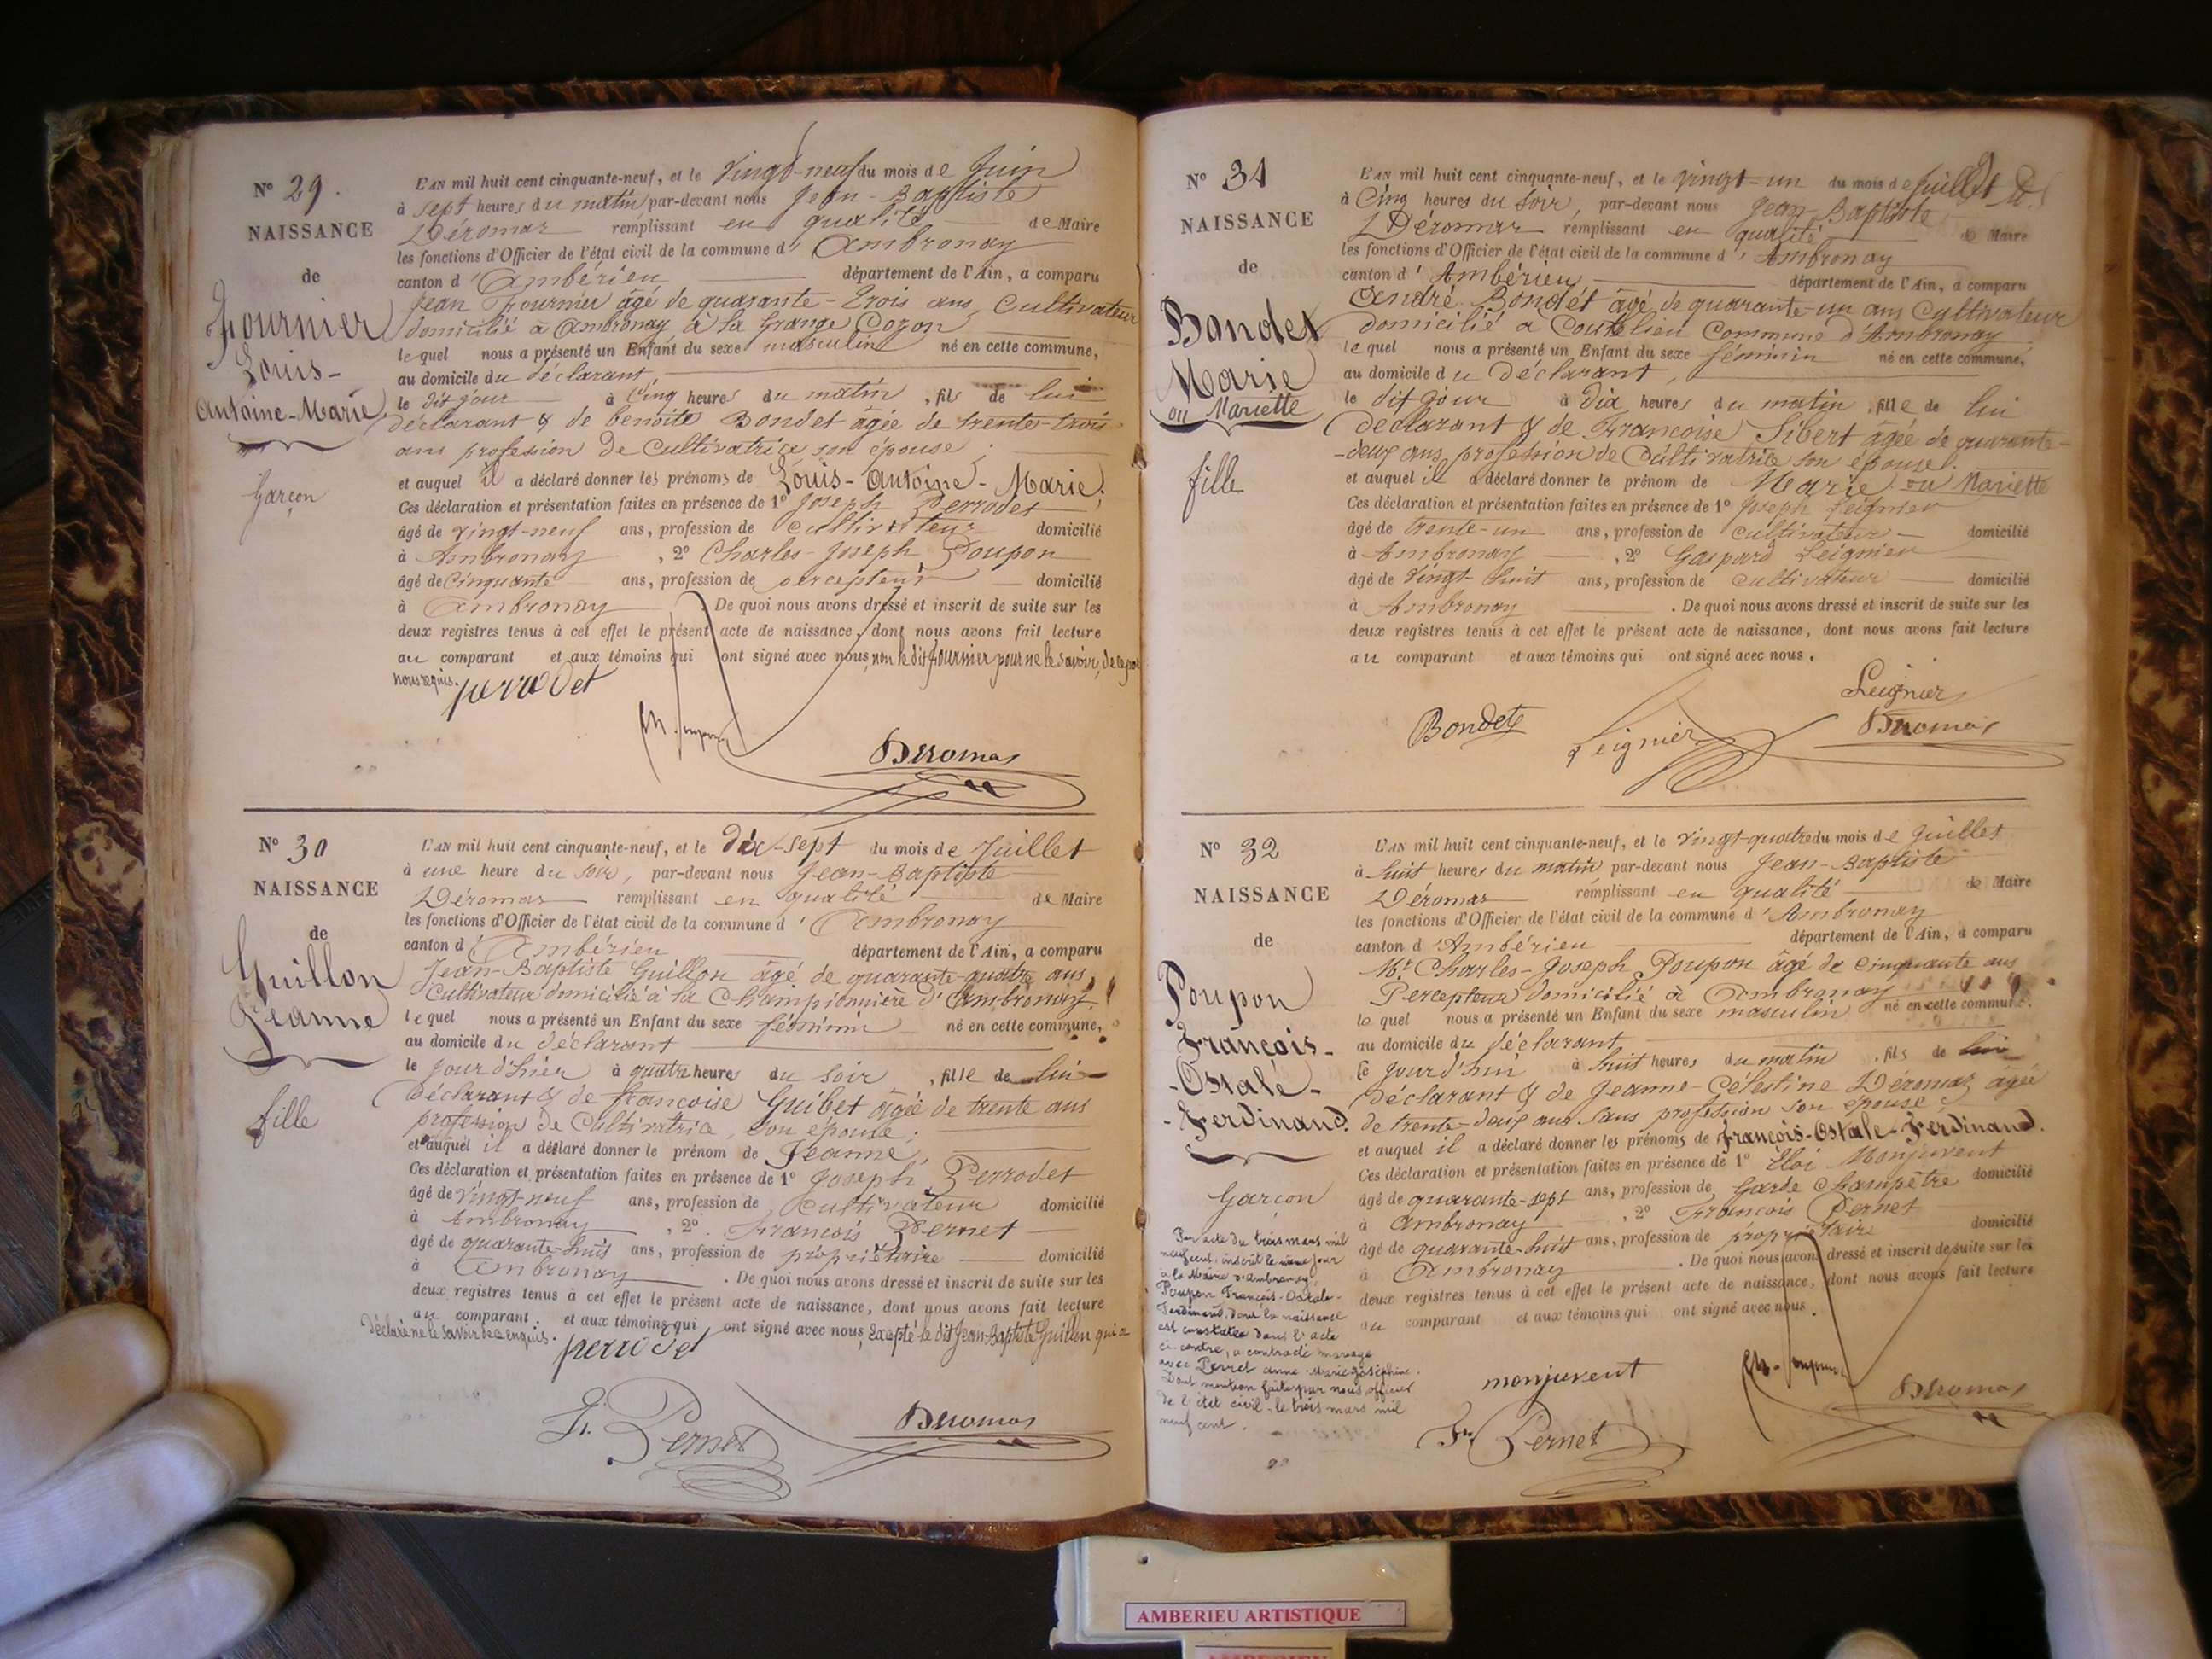 N° 29.
NAISSANCE
de
Fournier
Louis-
Antoine-Marie
Garçon
L'AN mil huit cent cinquante-neuf, et le Vingt-neuf du mois de Juin
à sept heures du matin par-devant nous Jean-Baptiste
Déromas remplissant en qualité de Maire
les fonctions d'Officier de l'état civil de la commune d'Ambronay
canton d'Ambérieu département de l'Ain, a comparu
Jean Fournier âgé de quarante-trois ans, Cultivateur
domicilié à Ambronay à la Grange Cozon
lequel nous a présenté un Enfant du sexe masculin né en cette commune,
au domicile du déclarant,
le dit jour à Cinq heures du matin, fils de lui
déclarant & de benoite Bondet âgée de trente-trois
ans profession de Cultivatrice son épouse;
et auquel il a déclaré donner les prénoms de Louis-Antoine-Marie;
Ces déclaration et présentation faites en présence de 1° Joseph Perrodet
âgé de vingt-neuf ans, profession de cultivateur domicilié
à Ambronay, 2° Charles-Joseph Poupon
âgé de Cinquante ans, profession de percepteur domicilié
à Ambronay. De quoi nous avons dressé et inscrit de suite sur les
deux registres tenus à cet effet le présent acte de naissance, dont nous avons fait lecture
au comparant et aux témoins qui ont signé avec nous, non le dit Fournier pour ne le savoir, de ce par
nous requis.
perrodet
Ch. Poupon
Deromas
N° 30
NAISSANCE
de
Guillon
Jeanne
fille
L'AN mil huit cent cinquante-neuf, et le dix-sept du mois de Juillet
à une heure du soir, par-devant nous Jean-Baptiste
Déromas remplissant en qualité de Maire
les fonctions d'Officier de l'état civil de la commune d'Ambronay
canton d'Ambérieu département de l'Ain, a comparu
Jean-Baptiste Guillon âgé de quarante-quatre ans,
Cultivateur domicilié à la Championnière d'Ambronay,
lequel nous a présenté un Enfant du sexe féminin né en cette commune,
au domicile du déclarant
le jour d'hier à quatre heures du soir, fille de lui
déclarant & de francoise Guibet âgée de trente ans
profession de Cultivatrice, son épouse;
et auquel il a déclaré donner le prénom de Jeanne,
Ces déclaration et présentation faites en présence de 1° Joseph Perrodet
âgé de vingt-neuf ans, profession de Cultivateur domicilié
à Ambronay, 2° François Pernet
âgé de quarante-huit ans, profession de propriétaire domicilié
à Ambronay. De quoi nous avons dressé et inscrit de suite sur les
deux registres tenus à cet effet le présent acte de naissance, dont nous avons fait lecture
au comparant et aux témoins qui ont signé avec nous, Excepté le dit Jean-Baptiste Guillon qui a
déclaré ne le savoir de ce enquis.
perrodet
Fr. Pernet
Deromas
N° 31
NAISSANCE
de
Bondet
Marie
ou Mariette
fille
L'AN mil huit cent cinquante-neuf, et le vingt-un du mois de juillet
à Cinq heures du soir, par-devant nous Jean-Baptiste
Déromas remplissant en qualité de Maire
les fonctions d'Officier de l'état civil de la commune d'Ambronay
canton d'Ambérieu département de l'Ain, a comparu
André Bondet âgé de quarante-un ans Cultivateur
domicilié à Coutelieu Commune d'Ambronay
lequel nous a présenté un Enfant du sexe féminin né en cette commune,
au domicile du Déclarant,
le dit jour à Dix heures du matin, fille de lui
déclarant & de Francoise Sibert âgée de quarante-
-deux ans, profession de Cultivatrice son épouse;
et auquel il a déclaré donner le prénom de Marie ou Mariette
Ces déclaration et présentation faites en présence de 1° Joseph Leignier
âgé de trente-un ans, profession de Cultivateur domicilié
à Ambronay, 2° Gaspard Leignier
âgé de vingt huit ans, profession de cultivateur domicilié
à Ambronay. De quoi nous avons dressé et inscrit de suite sur les
deux registres tenus à cet effet le présent acte de naissance, dont nous avons fait lecture
au comparant et aux témoins qui ont signé avec nous.
Leignier
Bondet
Leignier
Deromas
N° 32
NAISSANCE
de
Poupon
François-
-Ostale-
-Ferdinand.
Garçon
Par acte du trois mars mil
neuf cent, inscrit le même jour
à la Mairie d'Ambronay,
Poupon François-Ostale-
Ferdinand, dont la naissance
est constatée dans l'acte
ci-contre, a contracté mariage
avec Perret Anne-Marie-Joséphine.
Dont mention faite par nous officier
de l'état civil, le trois mars mil
neuf cent.
L'AN mil huit cent cinquante-neuf, et le vingt-quatre du mois de Juillet
à huit heures du matin par-devant nous Jean-Baptiste
Déromas remplissant en qualité de Maire
les fonctions d'Officier de l'état civil de la commune d'Ambronay
canton d'Ambérieu département de l'Ain, a comparu
Mr Charles-Joseph Poupon âgé de cinquante ans
Percepteur domicilié à Ambronay
lequel nous a présenté un Enfant du sexe masculin né en cette commune.
au domicile du déclarant,
Ce jourd'hui à huit heures du matin, fils de lui
déclarant & de Jeanne-Célestine Déromas âgée
de trente-deux ans sans profession son épouse;
et auquel il a déclaré donner les prénoms de François-Ostale-Ferdinand.
Ces déclaration et présentation faites en présence de 1° Eloi Monjuvent
âgé de quarante-sept ans, profession de Garde Champêtre domicilié
à Ambronay, 2° François Pernet
âgé de quarante-huit ans, profession de propriétaire domicilié
à Ambronay. De quoi nous avons dressé et inscrit de suite sur les
deux registres tenus à cet effet le présent acte de naissance, dont nous avons fait lecture
au comparant et aux témoins qui ont signé avec nous.
monjuvent
Ch. Poupon
Deromas
Fr. Pernet
AMBERIEU ARTISTIQUE
AMBERIEU